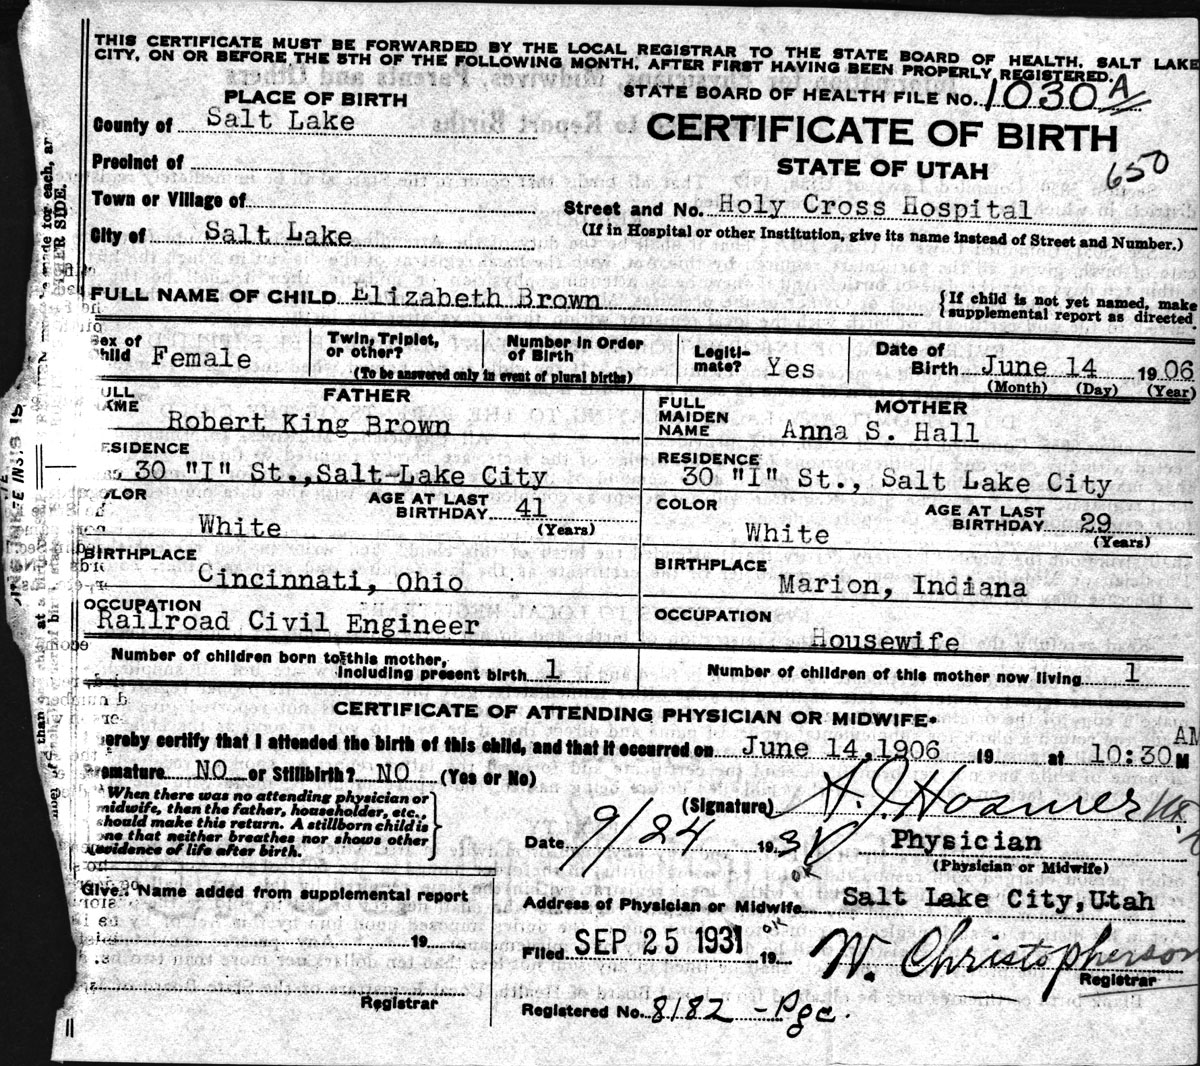 THIS CERTIFICATE MUST BE FORWARDED BY THE LOCAL REGISTRAR TO THE STATE BOARD OF HEALTH, SALT LAKE
CITY, ON OR BEFORE THE 5TH OF THE FOLLOWING MONTH, AFTER FIRST HAVING BEEN PROPERLY REGISTERED.
STATE BOARD OF HEALTH FILE No. 1030 A
PLACE OF BIRTH
County of Salt Lake
CERTIFICATE OF BIRTH
STATE OF UTAH
650
Precinct of
Town or Village of
Street and No. Holy Cross Hospital
City of Salt Lake
(If in Hospital or other Institution, give its name instead of Street and Number.)
FULL NAME OF CHILD Elizabeth Brown
{If child is not yet named, make
supplemental report as directed.
Sex of
Child Female
Twin, Triplet,
or other?
Number in Order
of Birth
(To be answered only in event of plural births)
Legiti-
mate? Yes
Date of
Birth June 14 1906
(Month) (Day) (Year)
FATHER
ULL
AME Robert King Brown
FULL
MAIDEN
NAME
MOTHER
Anna S. Hall
ESIDENCE
30 "I" St., Salt Lake City
RESIDENCE
30 "I" St., Salt Lake City
OLOR
White
AGE AT LAST
BIRTHDAY 41
(Years)
COLOR
White
AGE AT LAST
BIRTHDAY 29
(Years)
BIRTHPLACE
Cincinnati, Ohio
BIRTHPLACE
Marion, Indiana
OCCUPATION
Railroad Civil Engineer
OCCUPATION
Housewife
Number of children born to this mother,
including present birth 1
Number of children of this mother now living 1
CERTIFICATE OF ATTENDING PHYSICIAN OR MIDWIFE*
hereby certify that I attended the birth of this child, and that it occurred on June 14, 1906 19 at 10:30 AM M
Premature NO or Stillbirth? NO (Yes or No)
*When there was no attending physician or
midwife, then the father, householder, etc.,
should make this return. A stillborn child is
one that neither breathes nor shows other
evidence of life after birth.
(Signature)
Date 9/24 193
Physician
(Physician or Midwife)
Given Name added from supplemental report
Address of Physician or Midwife Salt Lake City, Utah
19
Filed SEP 25 1931 19 OK
W. Christopherson
Registrar
Registrar
Registered No. 8182 - Pge.